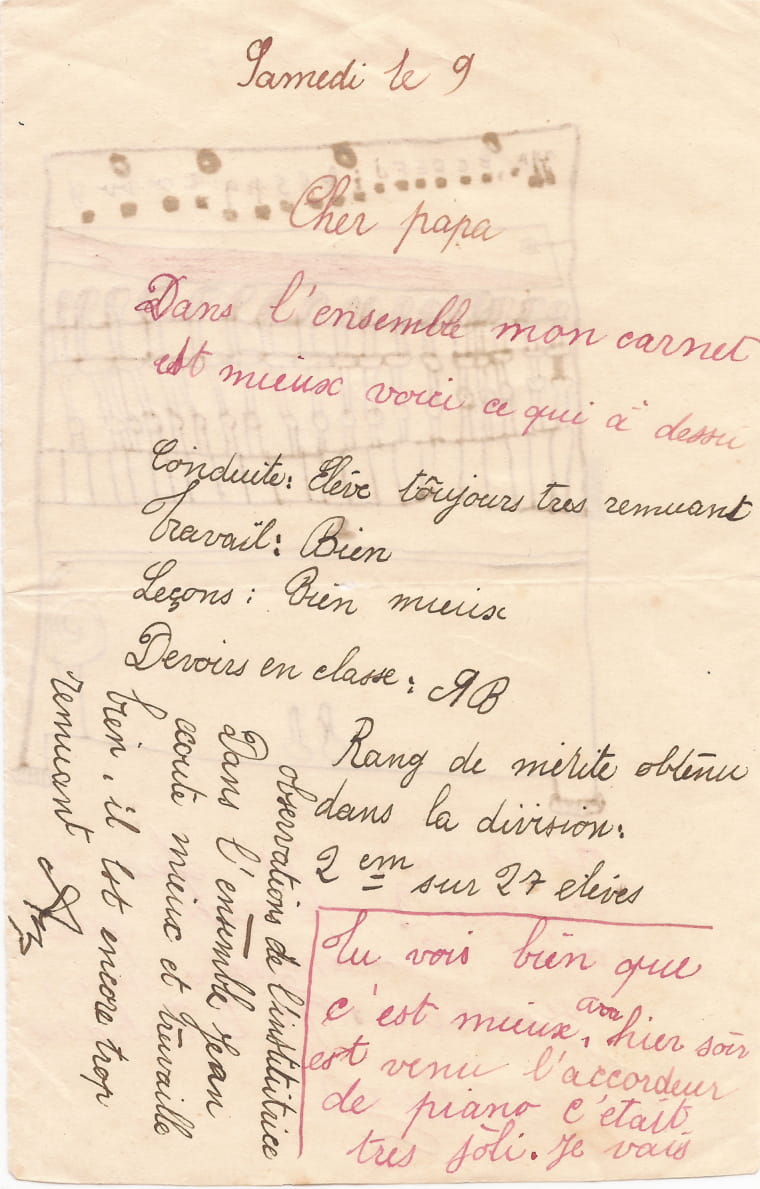 Samedi le 9
Cher papa
Dans l'ensemble mon carnet
est mieux voici ce qui à dessu
Conduite: Elève toujours tres remuant
Travail: Bien
Leçons: Bien mieux
Devoirs en classe: AB
Rang de mérite obtenu
dans la division:
2 em sur 27 elèves
observations de l'institutrice
Dans l'ensemble Jean
ecoute mieux et travaille
bien, il est encore trop
remuant
Tu vois bien que
c'est mieux, hier soir
est venu l'accordeur
de piano c'était
tres joli. Je vais